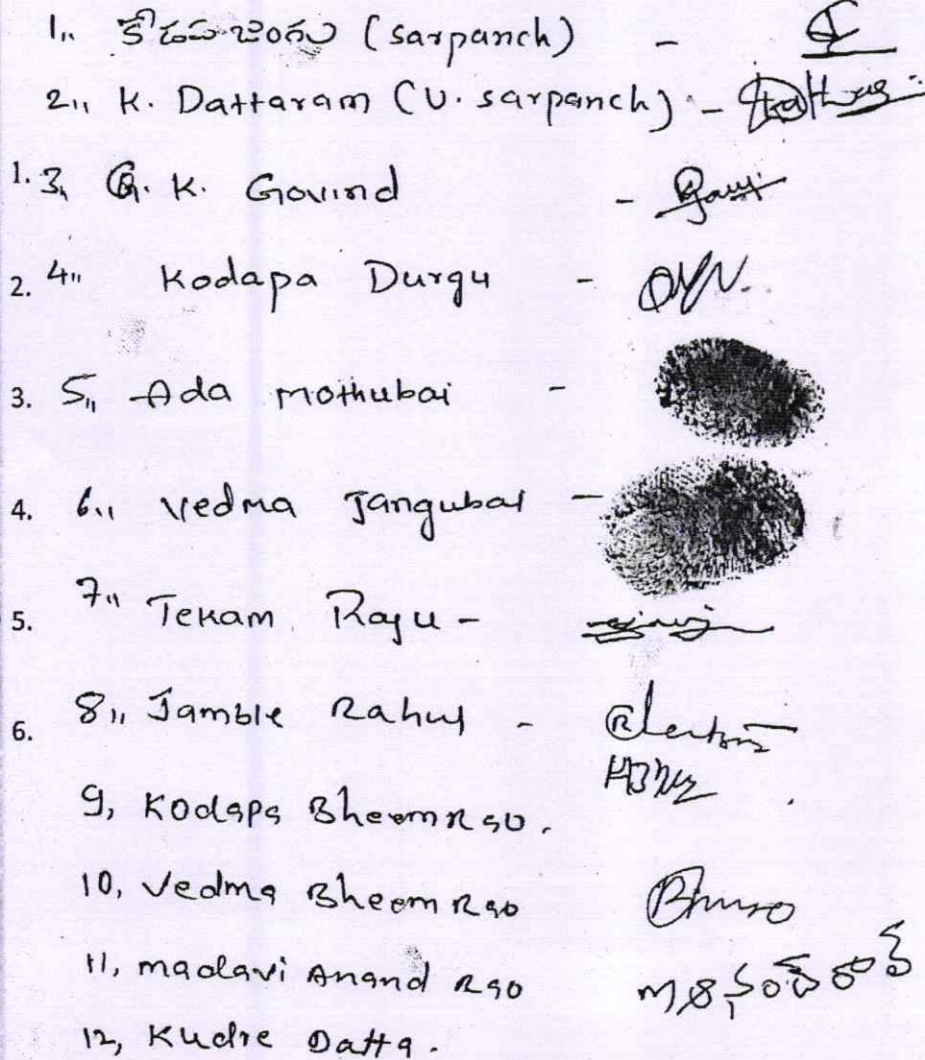 1,, కొడప జంగు (sarpanch) -
2,, K. Dattaram (V. sarpanch) -
1. 3, G. K. Govind -
2. 4,, Kodapa Durgu -
3. 5,, Ada Mothubai -
4. 6,, Vedma Jangubai -
5. 7,, Tekam Raju -
6. 8,, Jamble Rahul -
9, Kodapa BheemRao.
10, Vedma BheemRao
11, madavi Anand Rao
12, Kudre Datta.